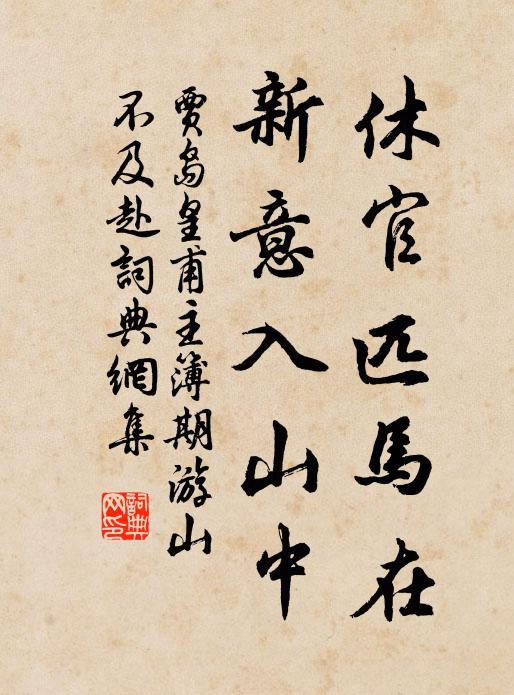 休官匹馬在
新意入山中
賈島皇甫主簿期游山
不及赴詞典網集
詞典網印